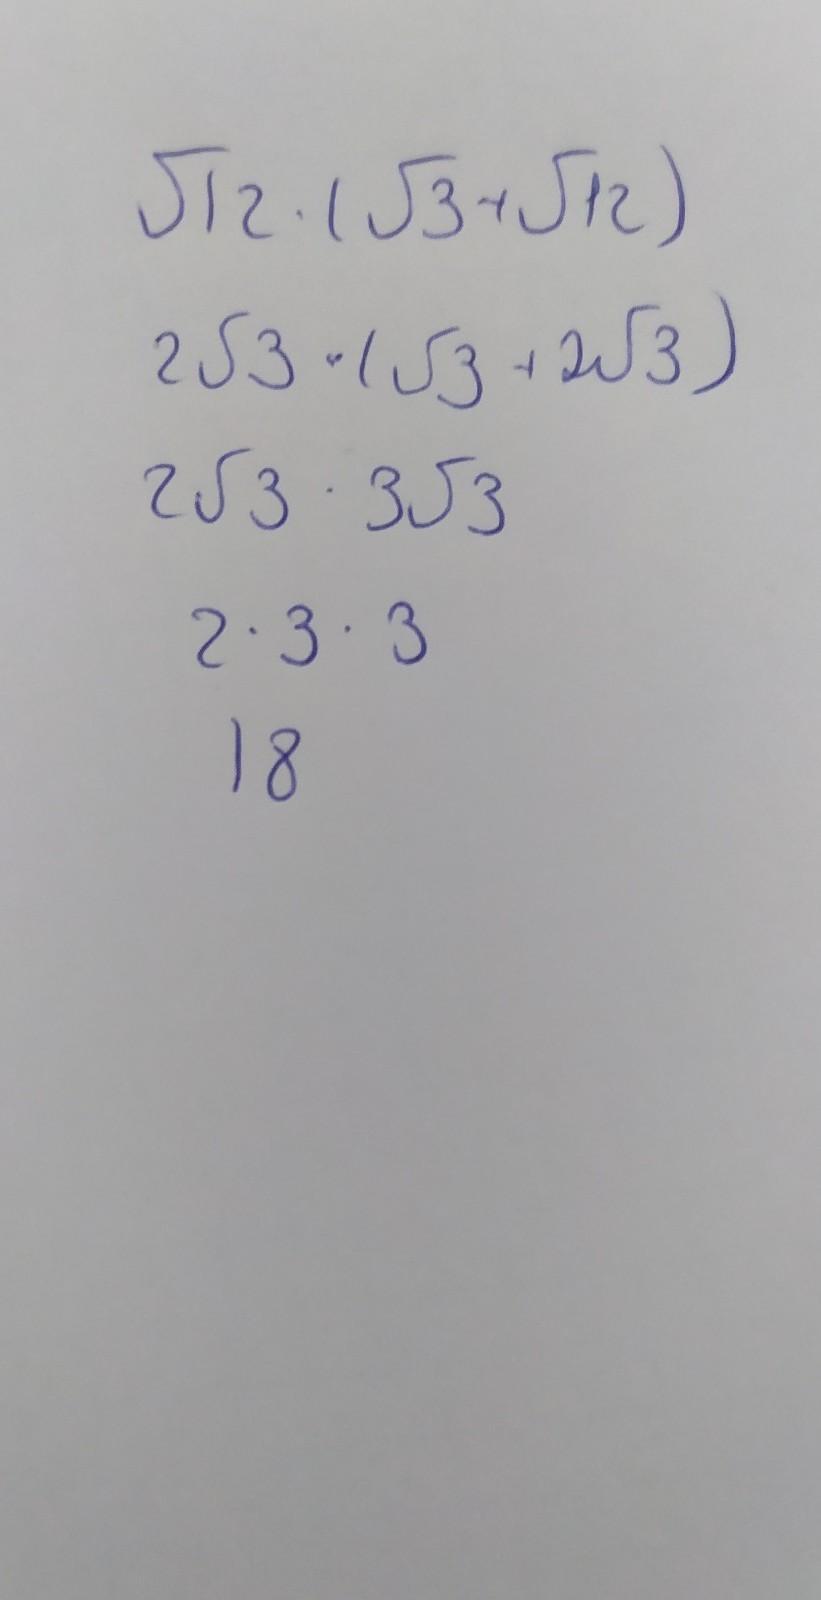 √12 · (√3 + √12)
2√3 · (√3 + 2√3)
2√3 · 3√3
2 · 3 · 3
18